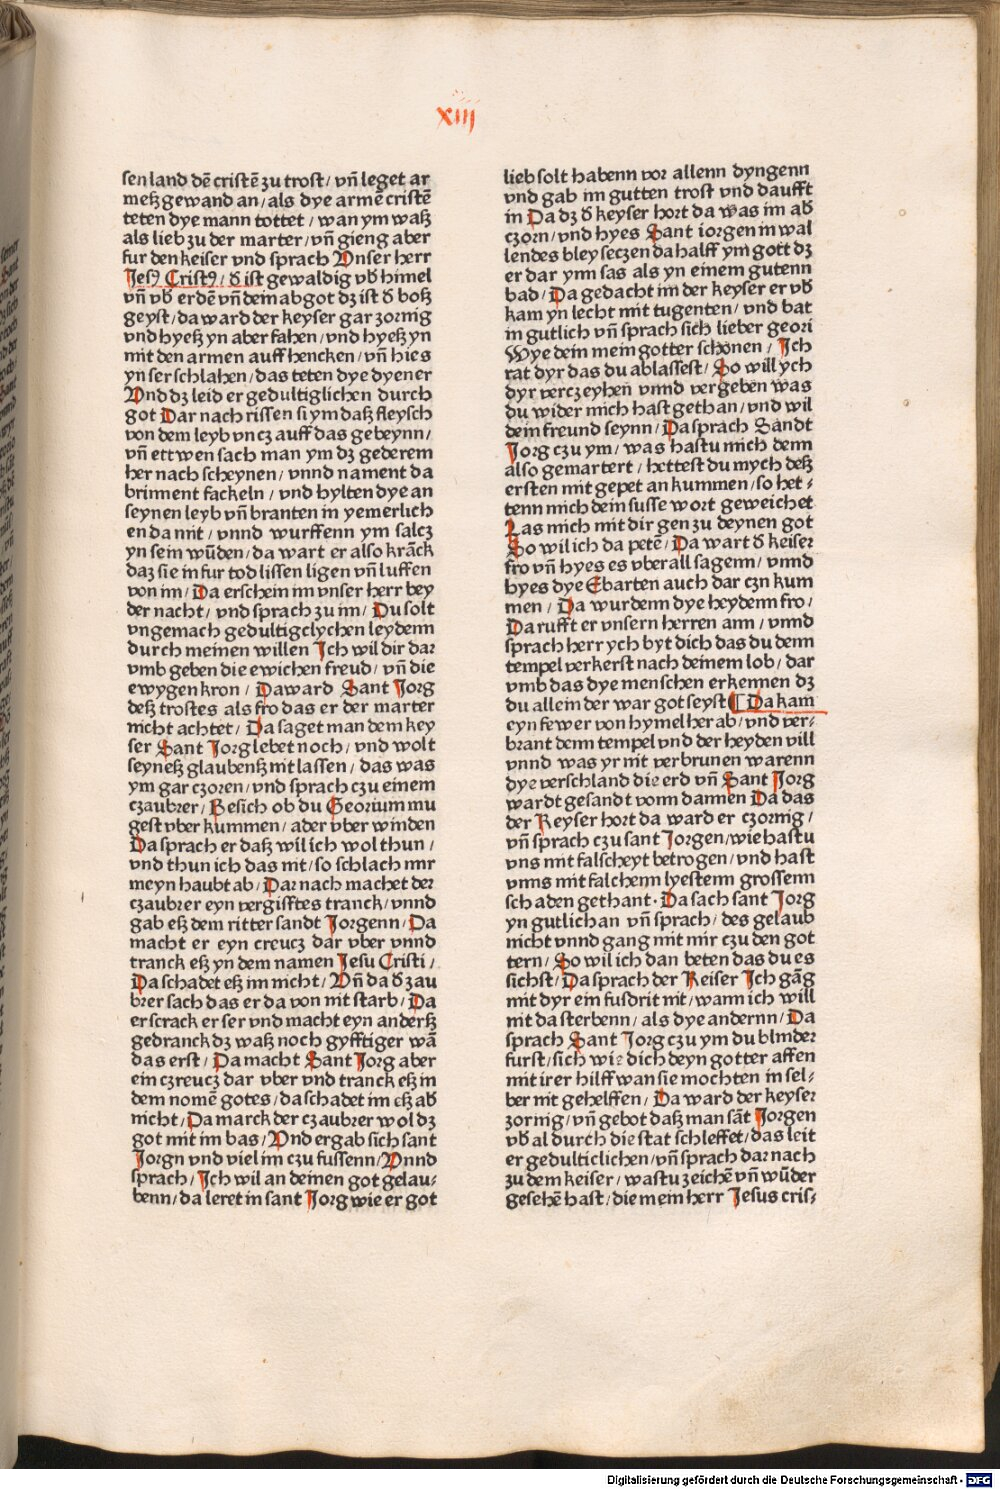 xiij
sen land dē cristē zu trost/ vñ leget ar
meß gewand an/ als dye armē cristē
teten dye mann tottet/ wan ym waß
als lieb zu der marter/ vñ gieng aber
fur den keiser vnd sprach Vnser herr
Jesꝰ Cristꝰ/ đ ist gewaldig vƀ himel
vñ vƀ erdē vñ dein abgot dz ist đ boß
geyst/ da ward der keyser gar zornig
vnd hyeß yn aber fahen/ vnd hyeß yn
mit den armen auff hencken/ vñ hies
yn ser schlahen/ das teten dye dyener
Vnd dz leid er gedultiglichen durch
got Dar nach rissen si ym daß fleysch
von dem leyb vncz auff das gebeynn/
vñ ettwen sach man ym dz gederem
her nach scheynen/ vnnd nament da
brinnent fackeln/ vnd hylten dye an
seynen leyb vñ branten in yemerlich
en da mit/ vnnd wurffenn ym salcz
yn sein wūden/ da wart er also krāck
daz sie in fur tod lissen ligen vñ luffen
von im/ Da erschein im vnser herr bey
der nacht/ vnd sprach zu im/ Du solt
vngemach gedultigclychen leydenn
durch meinen willen Ich wil dir dar
vmb geben die ewichen freud/ vñ die
ewygen kron/ Da ward Sant Jorg
deß trostes als fro das er der marter
nicht achtet/ Da saget man dem key
ser Sant Jorg lebet noch/ vnd wolt
seyneß glaubenß nit lassen/ das was
ym gar czoren/ vnd sprach czu einem
czaubrer/ Besich ob du Georium mu
gest vber kummen/ ader vber winden
Da sprach er daß wil ich wol thun/
vnd thun ich das nit/ so schlach mir
meyn haubt ab/ Dar nach machet der
czaubrer eyn vergifftes tranck/ vnnd
gab eß dem ritter sandt Jorgenn/ Da
macht er eyn creucz dar vber vnnd
tranck eß yn dem namen Jesu Cristi/
Da schadet eß im nicht/ Vñ da đ zau
brer sach das er da von nit starb/ Da
erscrack er ser vnd macht eyn anderß
gedranck dz waß noch gyfftiger wā
das erst/ Da macht Sant Jorg aber
ein czreucz dar vber vnd tranck eß in
dem nomē gotes/ da schadet im eß aƀ
nicht/ Da marck der czaubrer wol dz
got mit im bas/ Vnd ergab sich sant
Jorgn vnd viel im czu fussenn/ Vnnd
sprach/ Ich wil an deinen got gelau⸗
benn/ da leret in sant Jorg wie er got
lieb solt habenn vor allenn dyngenn
vnd gab im gutten trost vnd daufft
in Da dz đ keyser hort da was im aƀ
czorn/ vnd hyes Sant iorgen in wal
lendes bley seczen da halff ym gott dz
er dar ynn sas als yn einem gutenn
bad/ Da gedacht im der keyser er vƀ
kam yn lecht mit tugenten/ vnd bat
in gutlich vñ sprach sich lieber geori
Wye dein mein gotter schonen/ Ich
rat dyr das du ablassest/ So will ych
dyr verczeyhen vnnd vergeben was
du wider mich hast gethan/ vnd wil
dein freund seynn/ Da sprach Sandt
Jorg czu ym/ was hastu mich denn
also gemartert/ hettest du mych deß
ersten mit gepet an kummen/ so het⸗
tenn mich dein susse wort geweichet
Las mich mit dir gen zu deynen got
So wil ich da petē/ Da wart đ keiser
fro vñ hyes es vber all sagenn/ vnnd
hyes dye Ebarten auch dar czn kum
men/ Da wurdenn dye heydenn fro/
Da rufft er vnsern herren ann/ vnnd
sprach herr ych byt dich das du denn
tempel verkerst nach deinem lob/ dar
vmb das dye menschen erkennen dz
du allein der war got seyst ¶ Da kam
eyn fewer von hymel her ab/ vnd ver⸗
brant denn tempel vnd der heyden vill
vnnd was yr nit verbrunen warenn
dye verschland die erd vñ Sant Jorg
wardt gesandt vonn dannen Da das
der Keyser hort da ward er czornig/
vñ sprach czu sant Jorgen/ wie hastu
vns mit falscheyt betrogen/ vnd hast
vnns mit falchenn lyestenn grossenn
schaden gethant. Da sach sant Jorg
yn gutlich an vñ sprach/ des gelaub
nicht vnnd gang mit mir czu den got
tern/ So wil ich dan beten das du es
sichst/ Da sprach der Keiser Ich gāg
mit dyr ein fusdrit nit/ wann ich will
nit da sterbenn/ als dye andernn/ Da
sprach Sant Jorg czu ym du blinder
furst/ sich wie dich deyn gotter affen
mit irer hilff wan sie mochten in sel⸗
ber nit gehelffen/ Da ward der keyser
zornig/ vñ gebot daß man sāt Jorgen
vƀ al durch die stat schleffet/ das leit
er gedulticlichen/ vñ sprach dar nach
zu dem keiser/ wastu zeichē vñ wūder
gesehē hast/ die mein herr Jesus cris⸗
Digitalisierung gefördert durch die Deutsche Forschungsgemeinschaft - DFG